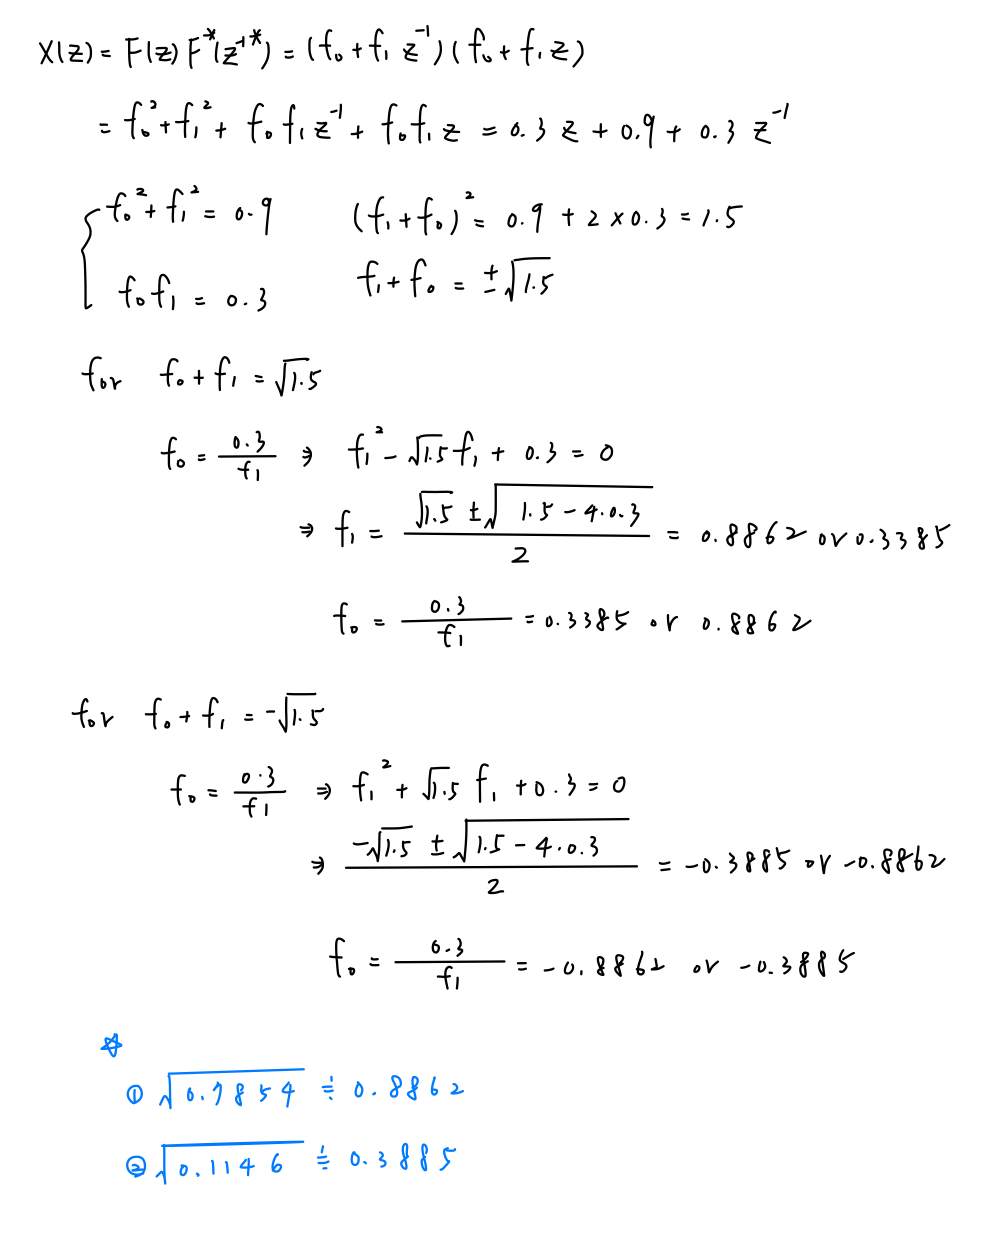 X(z) = F(z) F*(z^{-1*}) = (f₀ + f₁ z⁻¹)(f₀ + f₁ z)
= f₀² + f₁² + f₀ f₁ z⁻¹ + f₀ f₁ z = 0.3 z + 0.9 + 0.3 z⁻¹
f₀² + f₁² = 0.9 (f₁ + f₀)² = 0.9 + 2 × 0.3 = 1.5
f₀ f₁ = 0.3 f₁ + f₀ = ±√1.5
for f₀ + f₁ = √1.5
f₀ = 0.3/f₁ ⇒ f₁² - √1.5 f₁ + 0.3 = 0
⇒ f₁ = (√1.5 ± √(1.5 - 4·0.3))/2 = 0.8862 or 0.3385
f₀ = 0.3/f₁ = 0.3385 or 0.8862
for f₀ + f₁ = -√1.5
f₀ = 0.3/f₁ ⇒ f₁² + √1.5 f₁ + 0.3 = 0
⇒ (-√1.5 ± √(1.5 - 4·0.3))/2 = -0.3885 or -0.8862
f₀ = 0.3/f₁ = -0.8862 or -0.3885
☆
① √0.7854 ≒ 0.8862
② √0.1146 ≒ 0.3885